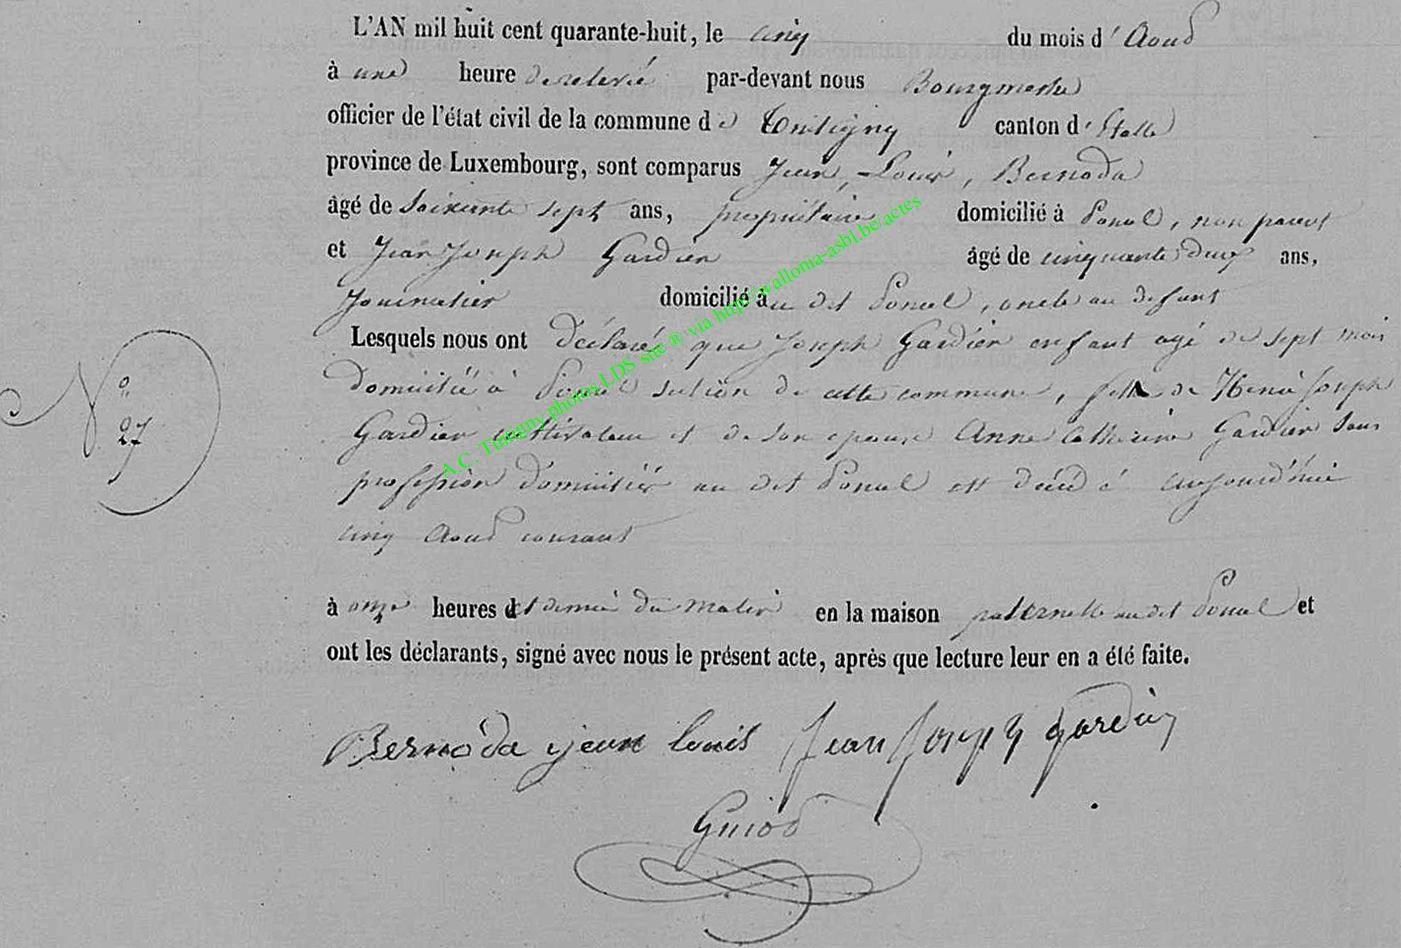 L'AN mil huit cent quarante-huit, le cinq du mois d'Aoud
à une heure de relevé par-devant nous Bourgmestre
officier de l'état civil de la commune de Tintigny canton d'Etalle
province de Luxembourg, sont comparus Jean, Louis, Bernoda
âgé de Soixante sept ans, propriétaire domicilié à Ponsel, non parent
et Jean Joseph Gardier âgé de cinquante deux ans,
Journalier domicilié à au dit Ponsel, oncle au defunt
Lesquels nous ont déclaré que Joseph Gardier enfant agé de sept mois
domicilié à section de cette commune, fils de Henri Joseph
N° 27
Gardier cultivateur et de son epouse Anne Catherine Gardier Sans
profession domiciliés au dit Ponsel est décédé aujourd'hui
cinq Aoud courant
à onze heures et demie du matin en la maison paternelle au dit Ponsel et
ont les déclarants, signé avec nous le présent acte, après que lecture leur en a été faite.
Bernoda jean louis Jean Joseph gardier
Guiod
A.C. Tintigny photos LDS site ® via http://walloma-asbl.be/actes